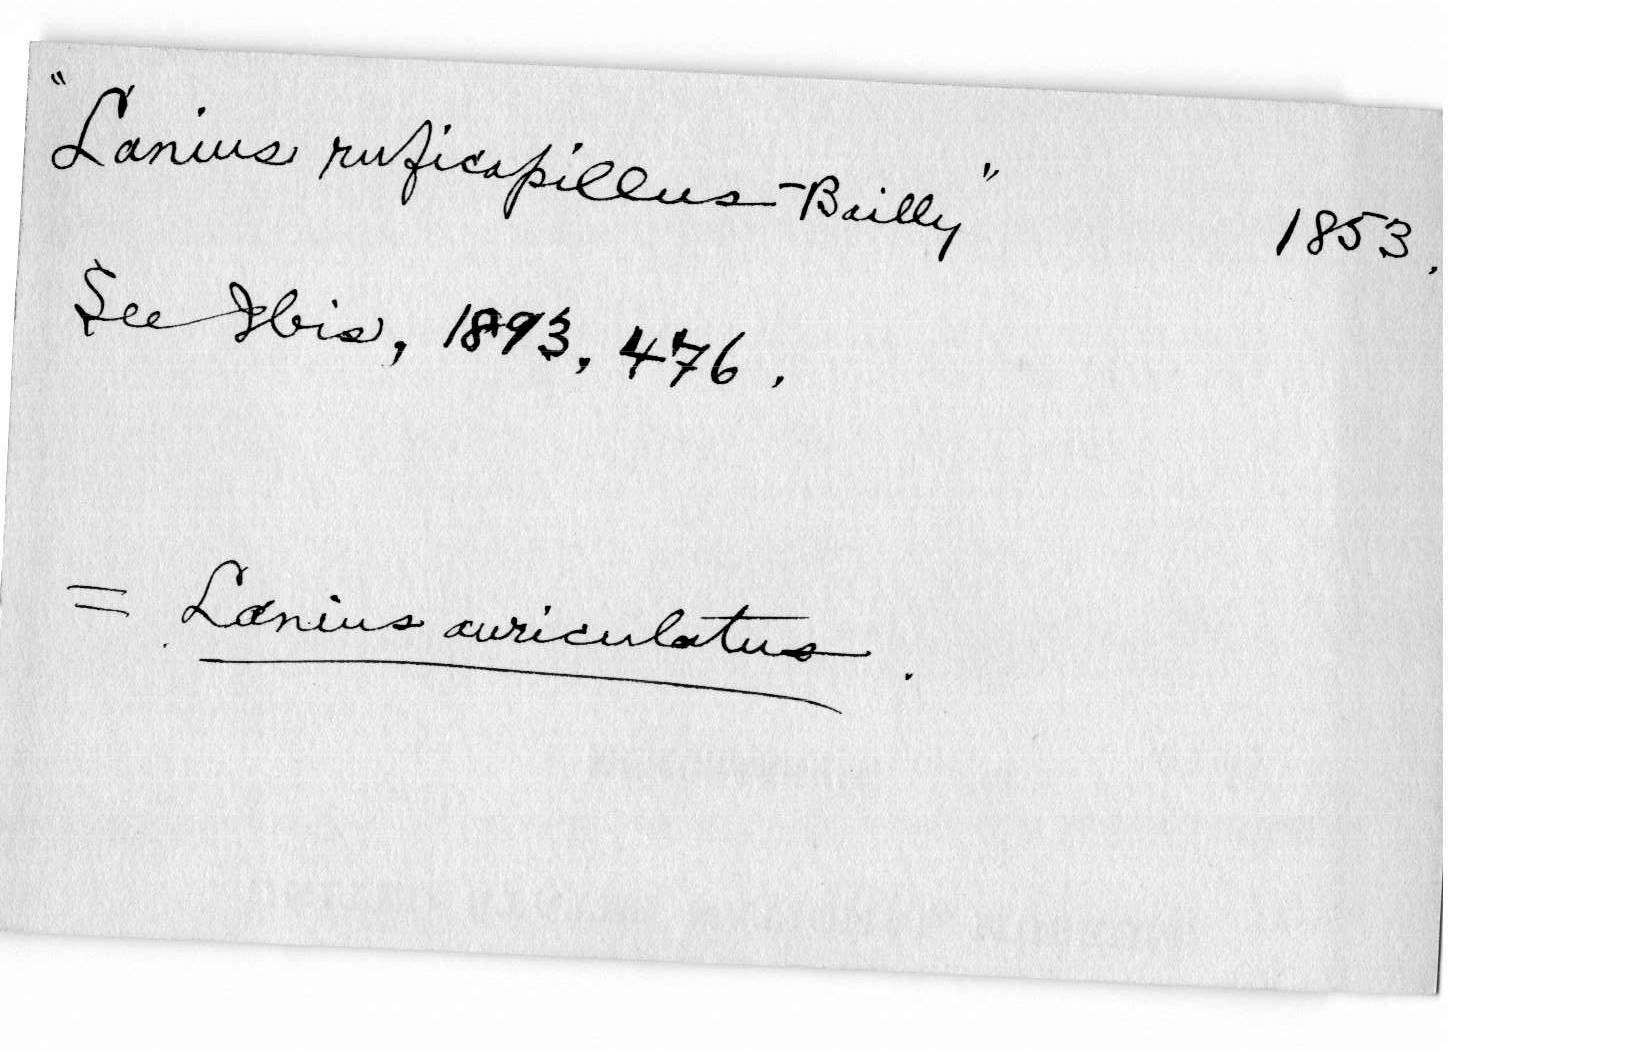 "Lanius ruficapillus-Bailly" 1853.
See Ibis, 1893, 476.
= Lanius auriculatus.